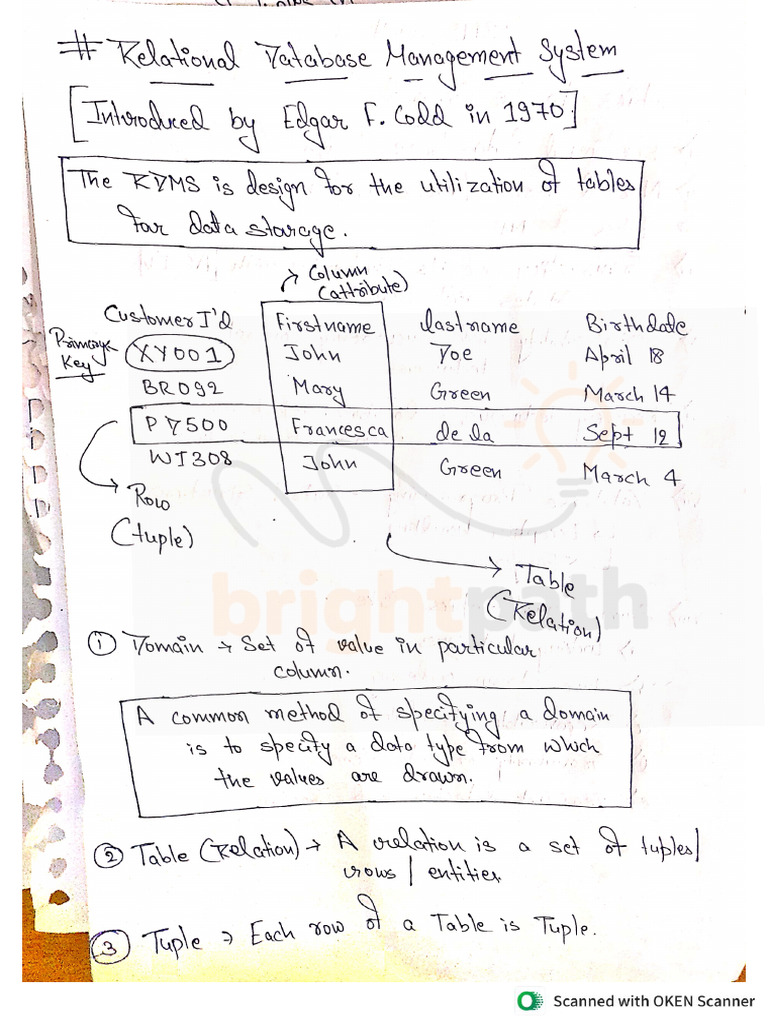 # Relational Database Management System
[Introduced by Edgar F. Codd in 1970]
The RDMS is design for the utilization of tables
for data storage.
Column
(attribute)
Customer I'd Firstname lastname Birthdate
Primary Key
XY001 John Doe April 18
BR092 Mary Green March 14
PD500 Francesca de la Sept 12
WI308 John Green March 4
Row
(tuple)
Table
(Relation)
brightpath
① Domain → Set of value in particular
column.
A common method of specifying a domain
is to specify a data type from which
the values are drawn.
② Table (Relation) → A relation is a set of tuples/
rows / entities
③ Tuple → Each row of a Table is Tuple.
Scanned with OKEN Scanner